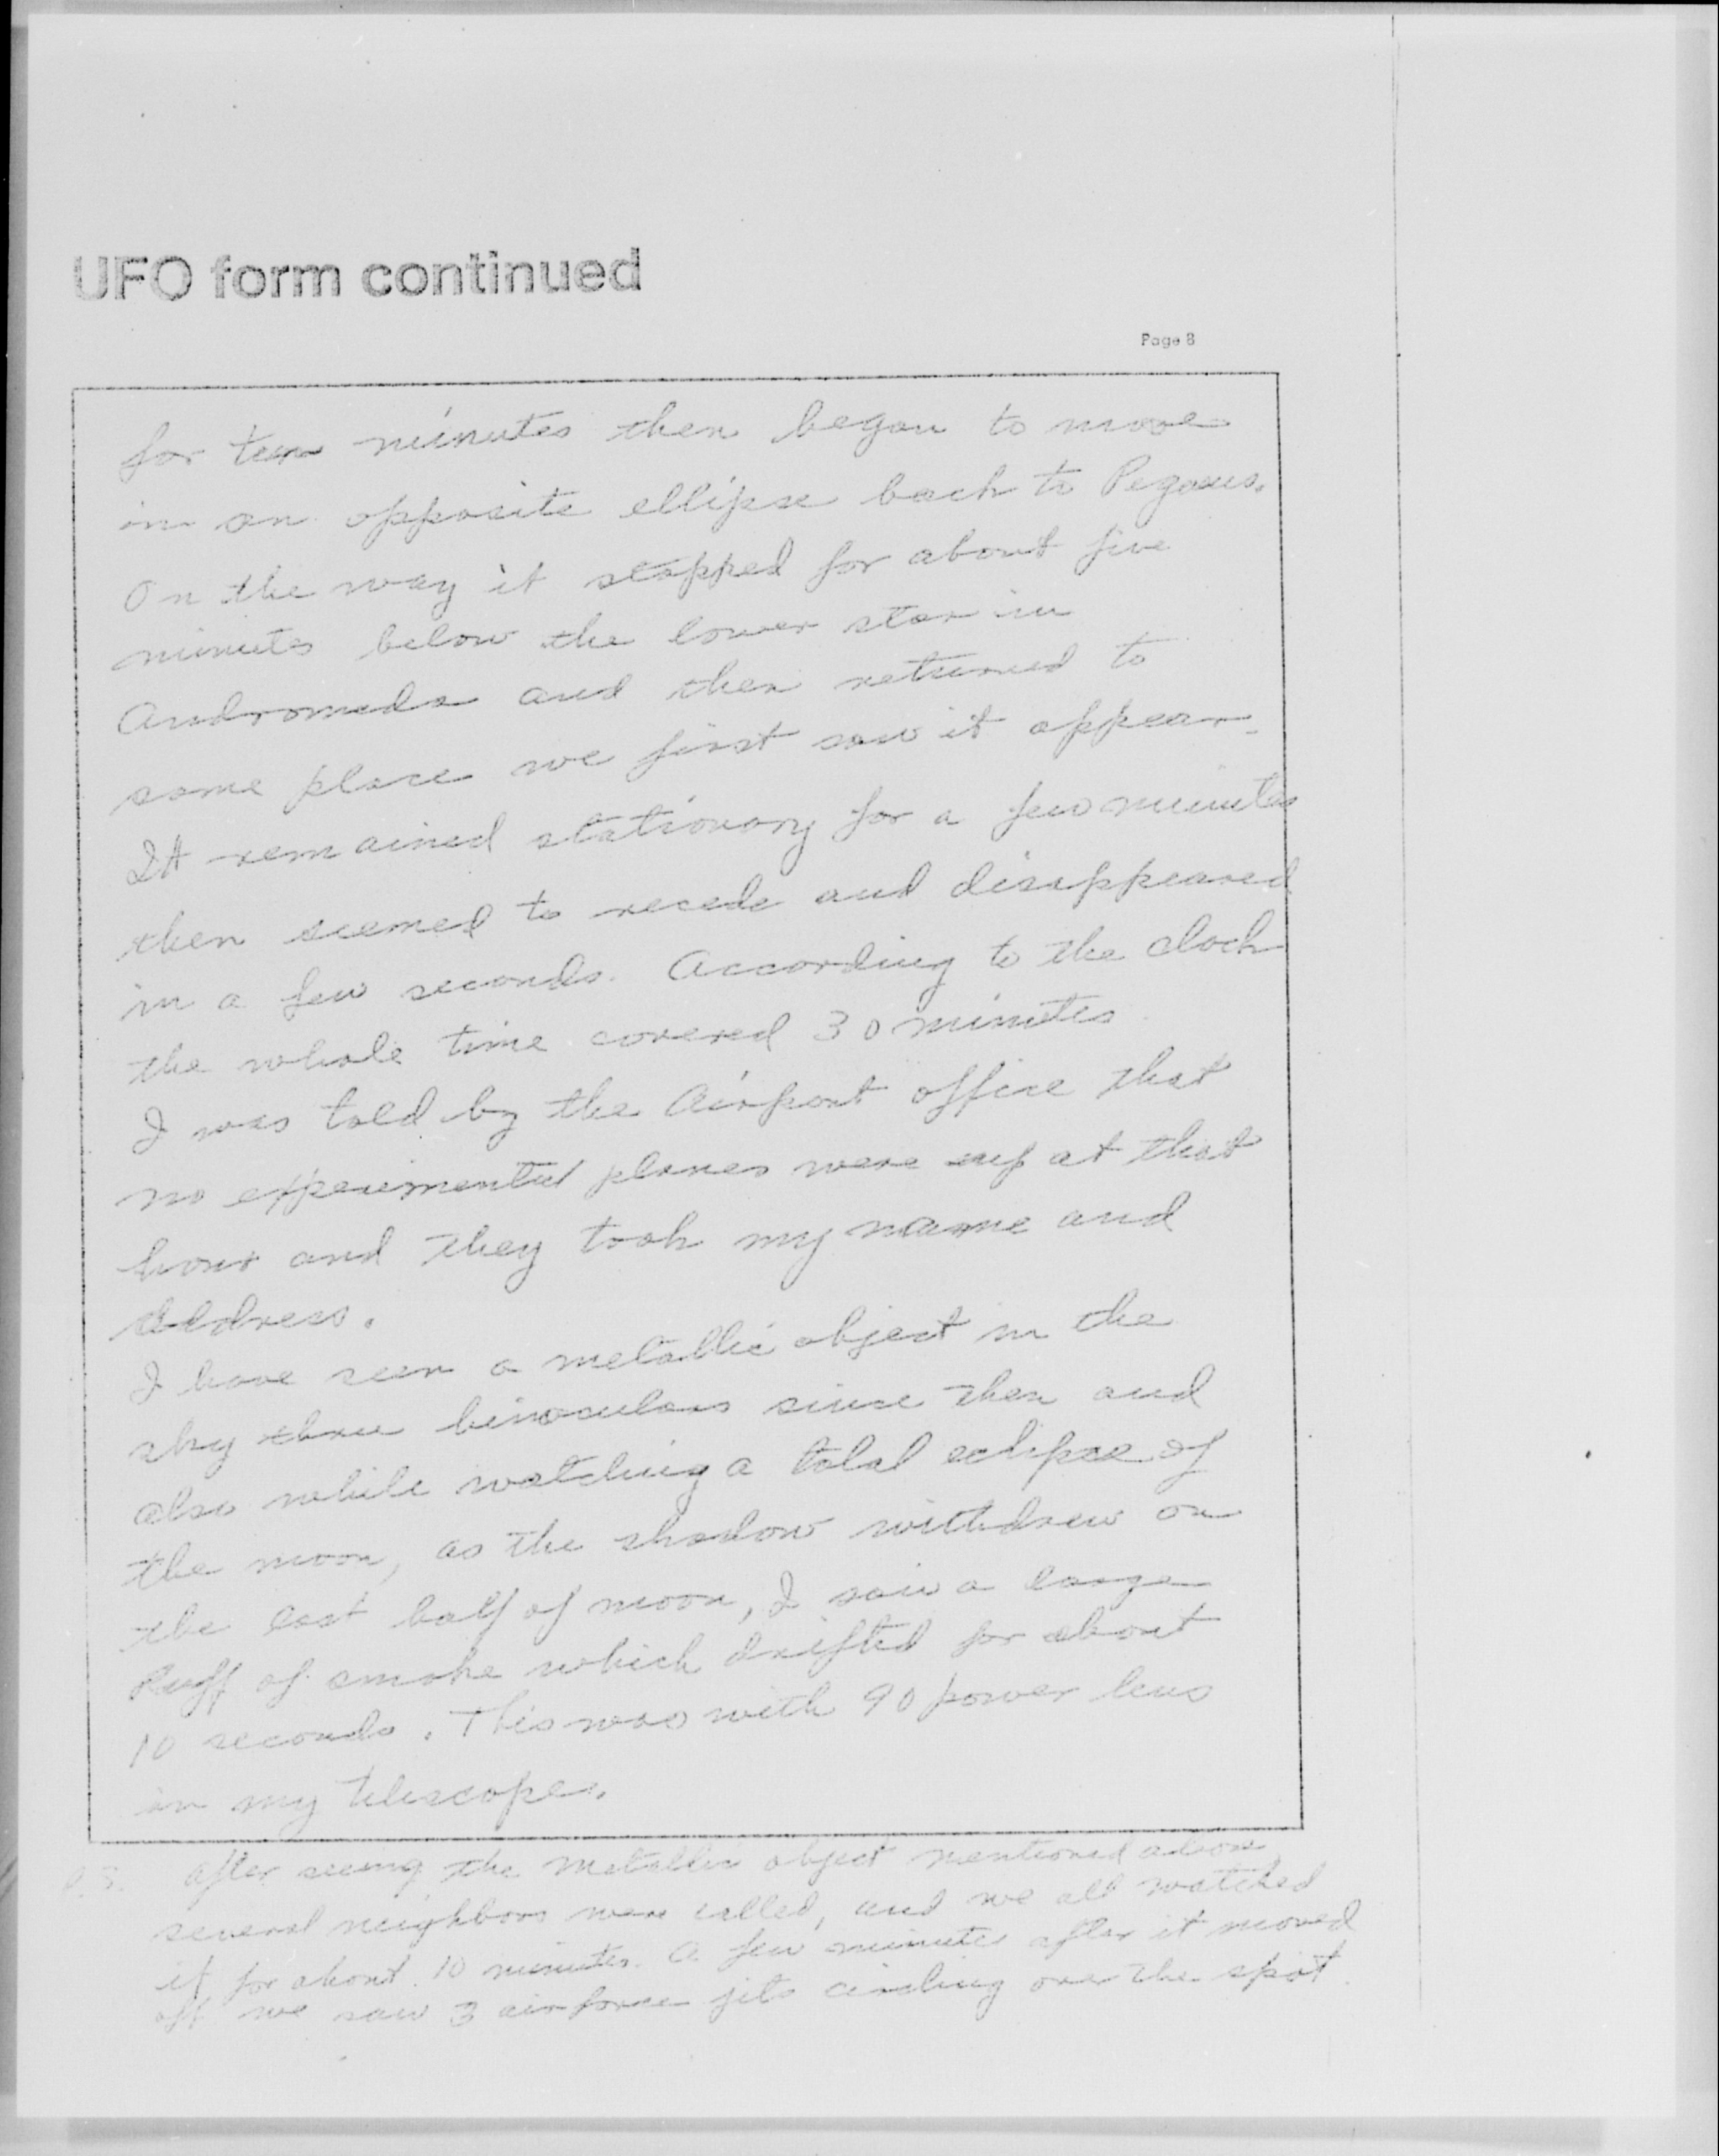 UFO form continued
Page 8
for ten minutes then began to move
in an opposite ellipse back to Pegasus.
On the way it stopped for about five
minutes below the lower star in
Andromeda and then returned to
same place we first saw it appear.
It remained stationary for a few minutes
then seemed to recede and disappeared
in a few seconds. According to the clock
the whole time covered 30 minutes.
I was told by the Airport office that
no experimental planes were up at that
hour and they took my name and
address.
I have seen a metallic object in the
sky thru binoculars since then and
also while watching a total eclipse of
the moon, as the shadow withdrew on
the last half of moon, I saw a large
Puff of smoke which drifted for about
10 seconds. This was with 90 power lens
in my telescope.
P.S. After seeing the metallic object mentioned above
several neighbors were called, and we all watched
it for about 10 minutes. A few minutes after it moved
off we saw 3 airforce jets circling over the spot.